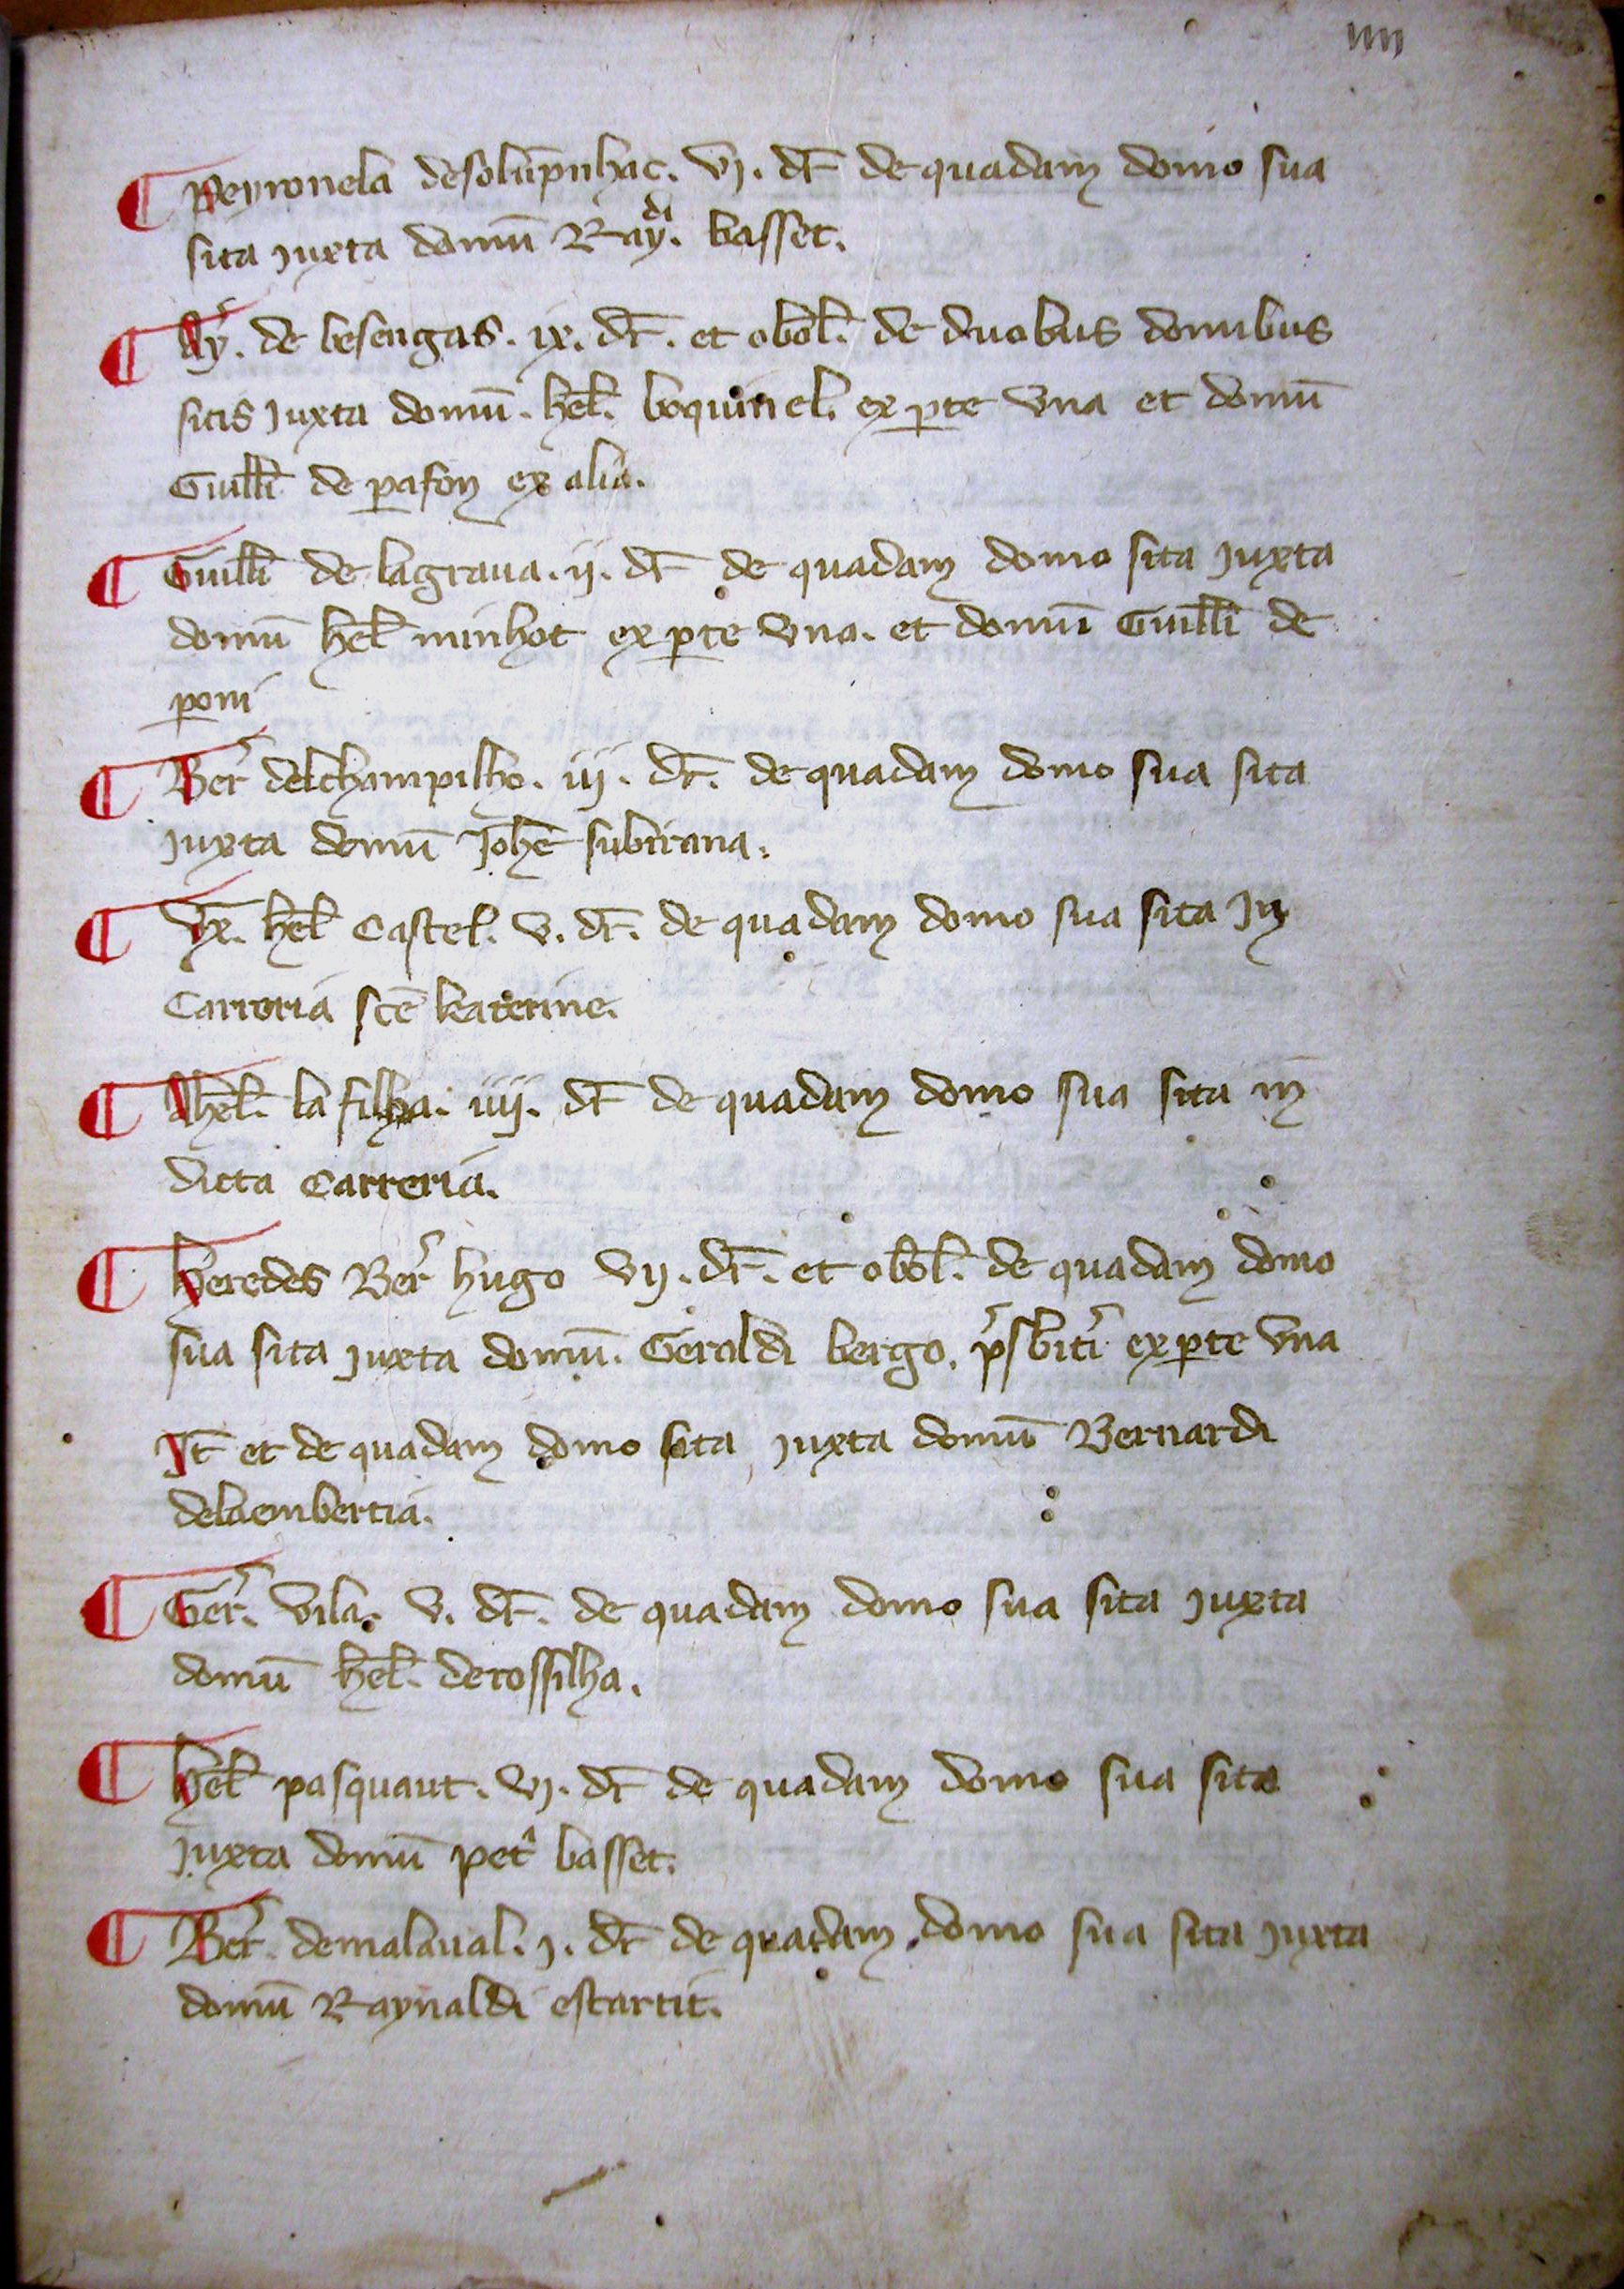 iiii
Peyronela desolūpnhac. vj. dr̄ de quadam domo sua
sita juxta domū Raydi. basset.
Ay. de besengas. ix. dr̄. et obol̄. de duobus domibus
sitis juxta domū. hel̄. boquinel. ex pte vna et domū
Guill̄i de pason ex alia.
Guill̄i de lagraua. ij. dr̄ de quadam domo sita juxta
domū hel̄ minhot ex pte vna. et domū Guill̄i de
poni
Ber̄ delchampilho. iij. dr̄. de quadam domo sua sita
juxta domū Johē subirana.
Vx̄. hel̄ Castel. v. dr̄. de quadam domo sua sita Jn
Carreria sc̄e katerine.
Ahel̄. la filha. iiij. dr̄ de quadam domo sua sita in
dicta Carreria.
heredes Ber̄ hugo vij. dr̄. et obol̄. de quadam domo
sua sita juxta domū. Geraldi bergo. p̄sbit̄i ex pte vna
It̄ et de quadam domo sita juxta domū Bernardi
delaembertia.
Ger̄. vila. v. dr̄. de quadam domo sua sita juxta
domū hel̄. derossilha.
hel̄ pasquaut. vj. dr̄ de quadam domo sua sita
juxta domū pet̄ basset.
Ber̄ demalaual. j. dr̄ de quadam domo sua sita juxta
domū Raynaldi estartit.